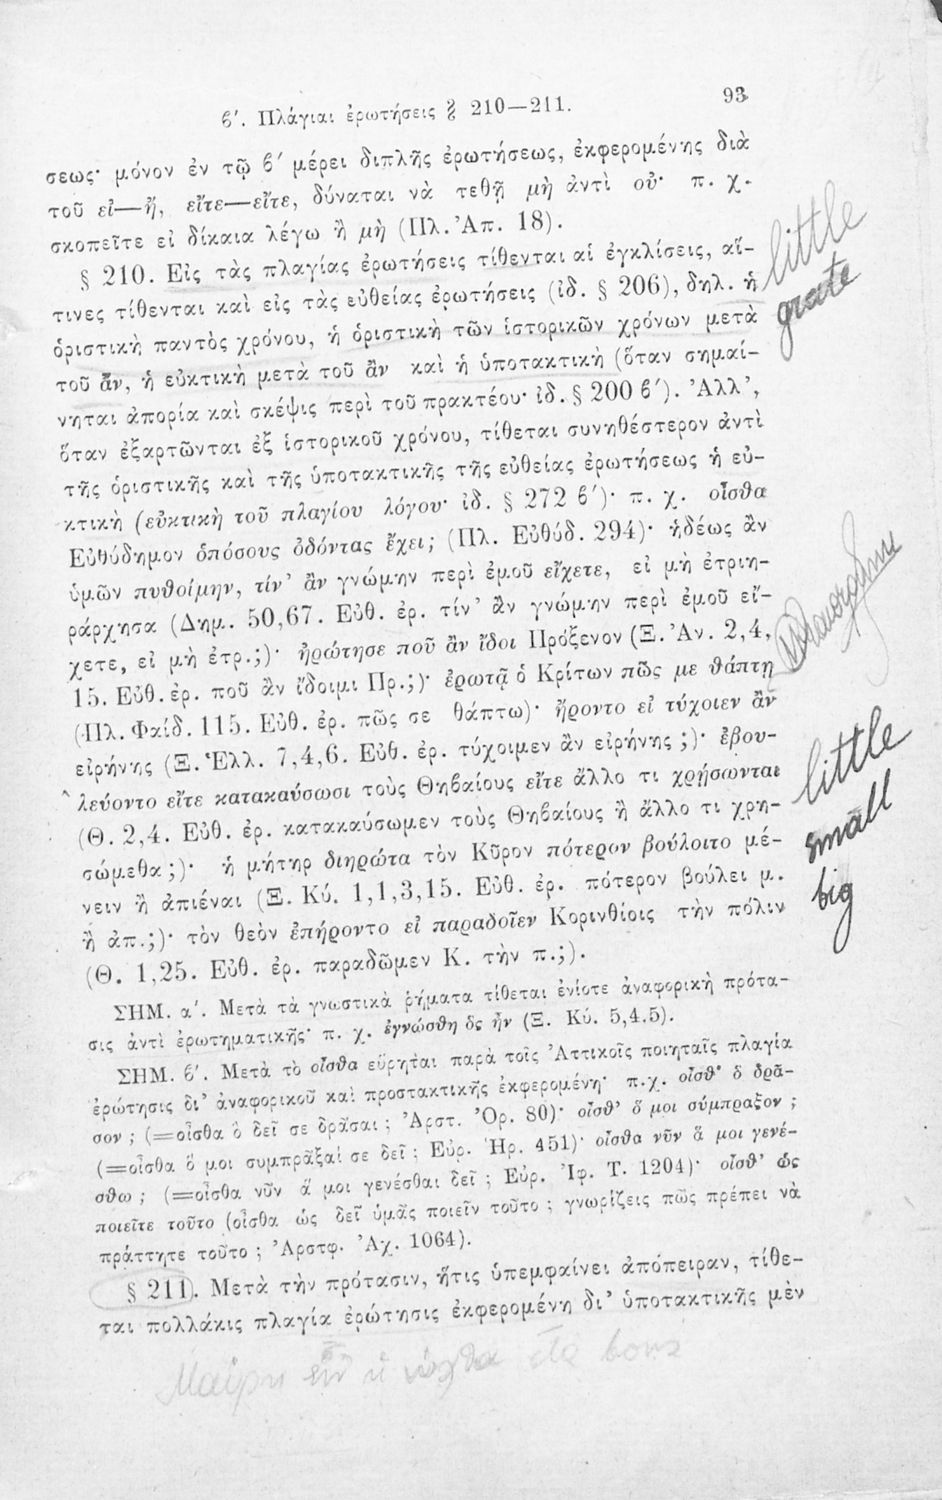 ϐ′. Πλάγιαι ἐρωτήσεις § 210—211. 93
σεως· μόνον ἐν τῷ ϐ′ μέρει διπλῆς ἐρωτήσεως, ἐκφερομένης διὰ
τοῦ εἰ—ἤ, εἴτε—εἴτε, δύναται νὰ τεθῇ μὴ ἀντὶ οὐ· π. χ.
σκοπεῖτε εἰ δίκαια λέγω ἢ μὴ (Πλ. Ἀπ. 18).
§ 210. Εἰς τὰς πλαγίας ἐρωτήσεις τίθενται αἱ ἐγκλίσεις, αἵ-
τινες τίθενται καὶ εἰς τὰς εὐθείας ἐρωτήσεις (ἰδ. § 206), δηλ. ἡ
ὁριστικὴ παντὸς χρόνου, ἡ ὁριστικὴ τῶν ἱστορικῶν χρόνων μετὰ
τοῦ ἄν, ἡ εὐκτικὴ μετὰ τοῦ ἂν καὶ ἡ ὑποτακτικὴ (ὅταν σημαί-
νηται ἀπορία καὶ σκέψις περὶ τοῦ πρακτέου· ἰδ. § 200 ϐ′). Ἀλλ’,
ὅταν ἐξαρτῶνται ἐξ ἱστορικοῦ χρόνου, τίθεται συνηθέστερον ἀντὶ
τῆς ὁριστικῆς καὶ τῆς ὑποτακτικῆς τῆς εὐθείας ἐρωτήσεως ἡ εὐ-
κτικὴ (εὐκτικὴ τοῦ πλαγίου λόγου· ἰδ. § 272 ϐ′)· π. χ. οἶσθα
Εὐθύδημον ὁπόσους ὀδόντας ἔχει; (Πλ. Εὐθύδ. 294)· ἡδέως ἂν
ὑμῶν πυθοίμην, τίν’ ἂν γνώμην περὶ ἐμοῦ εἴχετε, εἰ μὴ ἐτριη-
ράρχησα (Δημ. 50,67. Εὐθ. ἐρ. τίν’ ἂν γνώμην περὶ ἐμοῦ εἴ-
χετε, εἰ μὴ ἐτρ.;)· ἠρώτησε ποῦ ἂν ἴδοι Πρόξενον (Ξ. Ἀν. 2,4,
15. Εὐθ. ἐρ. ποῦ ἂν ἴδοιμι Πρ.;)· ἐρωτᾷ ὁ Κρίτων πῶς με θάπτῃ
(Πλ. Φαίδ. 115. Εὐθ. ἐρ. πῶς σε θάπτω)· ἤροντο εἰ τύχοιεν ἂν
εἰρήνης (Ξ. Ἑλλ. 7,4,6. Εὐθ. ἐρ. τύχοιμεν ἂν εἰρήνης ;)· ἐβου-
λεύοντο εἴτε κατακαύσωσι τοὺς Θηβαίους εἴτε ἄλλο τι χρήσωνται
(Θ. 2,4. Εὐθ. ἐρ. κατακαύσωμεν τοὺς Θηβαίους ἢ ἄλλο τι χρη-
σώμεθα ;)· ἡ μήτηρ διηρώτα τὸν Κῦρον πότερον βούλοιτο μέ-
νειν ἢ ἀπιέναι (Ξ. Κύ. 1,1,3,15. Εὐθ. ἐρ. πότερον βούλει μ.
ἢ ἀπ.;)· τὸν θεὸν ἐπήροντο εἰ παραδοῖεν Κορινθίοις τὴν πόλιν
(Θ. 1,25. Εὐθ. ἐρ. παραδῶμεν Κ. τὴν π.;).
ΣΗΜ. α′. Μετὰ τὰ γνωστικὰ ῥήματα τίθεται ἐνίοτε ἀναφορικὴ πρότα-
σις ἀντὶ ἐρωτηματικῆς· π. χ. ἐγνώσθη ὃς ἦν (Ξ. Κύ. 5,4.5).
ΣΗΜ. ϐ′. Μετὰ τὸ οἶσθα εὕρηται παρὰ τοῖς Ἀττικοῖς ποιηταῖς πλαγία
ἐρώτησις δι’ ἀναφορικοῦ καὶ προστακτικῆς ἐκφερομένη· π.χ. οἶσθ’ ὃ δρᾶ-
σον ; (=οἶσθα ὃ δεῖ σε δρᾶσαι ; Ἀρστ. Ὄρ. 80)· οἶσθ’ ὅ μοι σύμπραξον ;
(=οἶσθα ὅ μοι συμπρᾶξαί σε δεῖ ; Εὐρ. Ἡρ. 451)· οἶσθα νῦν ἅ μοι γενέ-
σθω ; (=οἶσθα νῦν ἅ μοι γενέσθαι δεῖ ; Εὐρ. Ἰφ. Τ. 1204)· οἶσθ’ ὡς
ποιεῖτε τοῦτο (οἶσθα ὡς δεῖ ὑμᾶς ποιεῖν τοῦτο ; γνωρίζεις πῶς πρέπει νὰ
πράττητε τοῦτο ; Ἀρστφ. Ἀχ. 1064).
§ 211. Μετὰ τὴν πρότασιν, ἥτις ὑπεμφαίνει ἀπόπειραν, τίθε-
ται πολλάκις πλαγία ἐρώτησις ἐκφερομένη δι’ ὑποτακτικῆς μὲν
little
grate
little
small
big